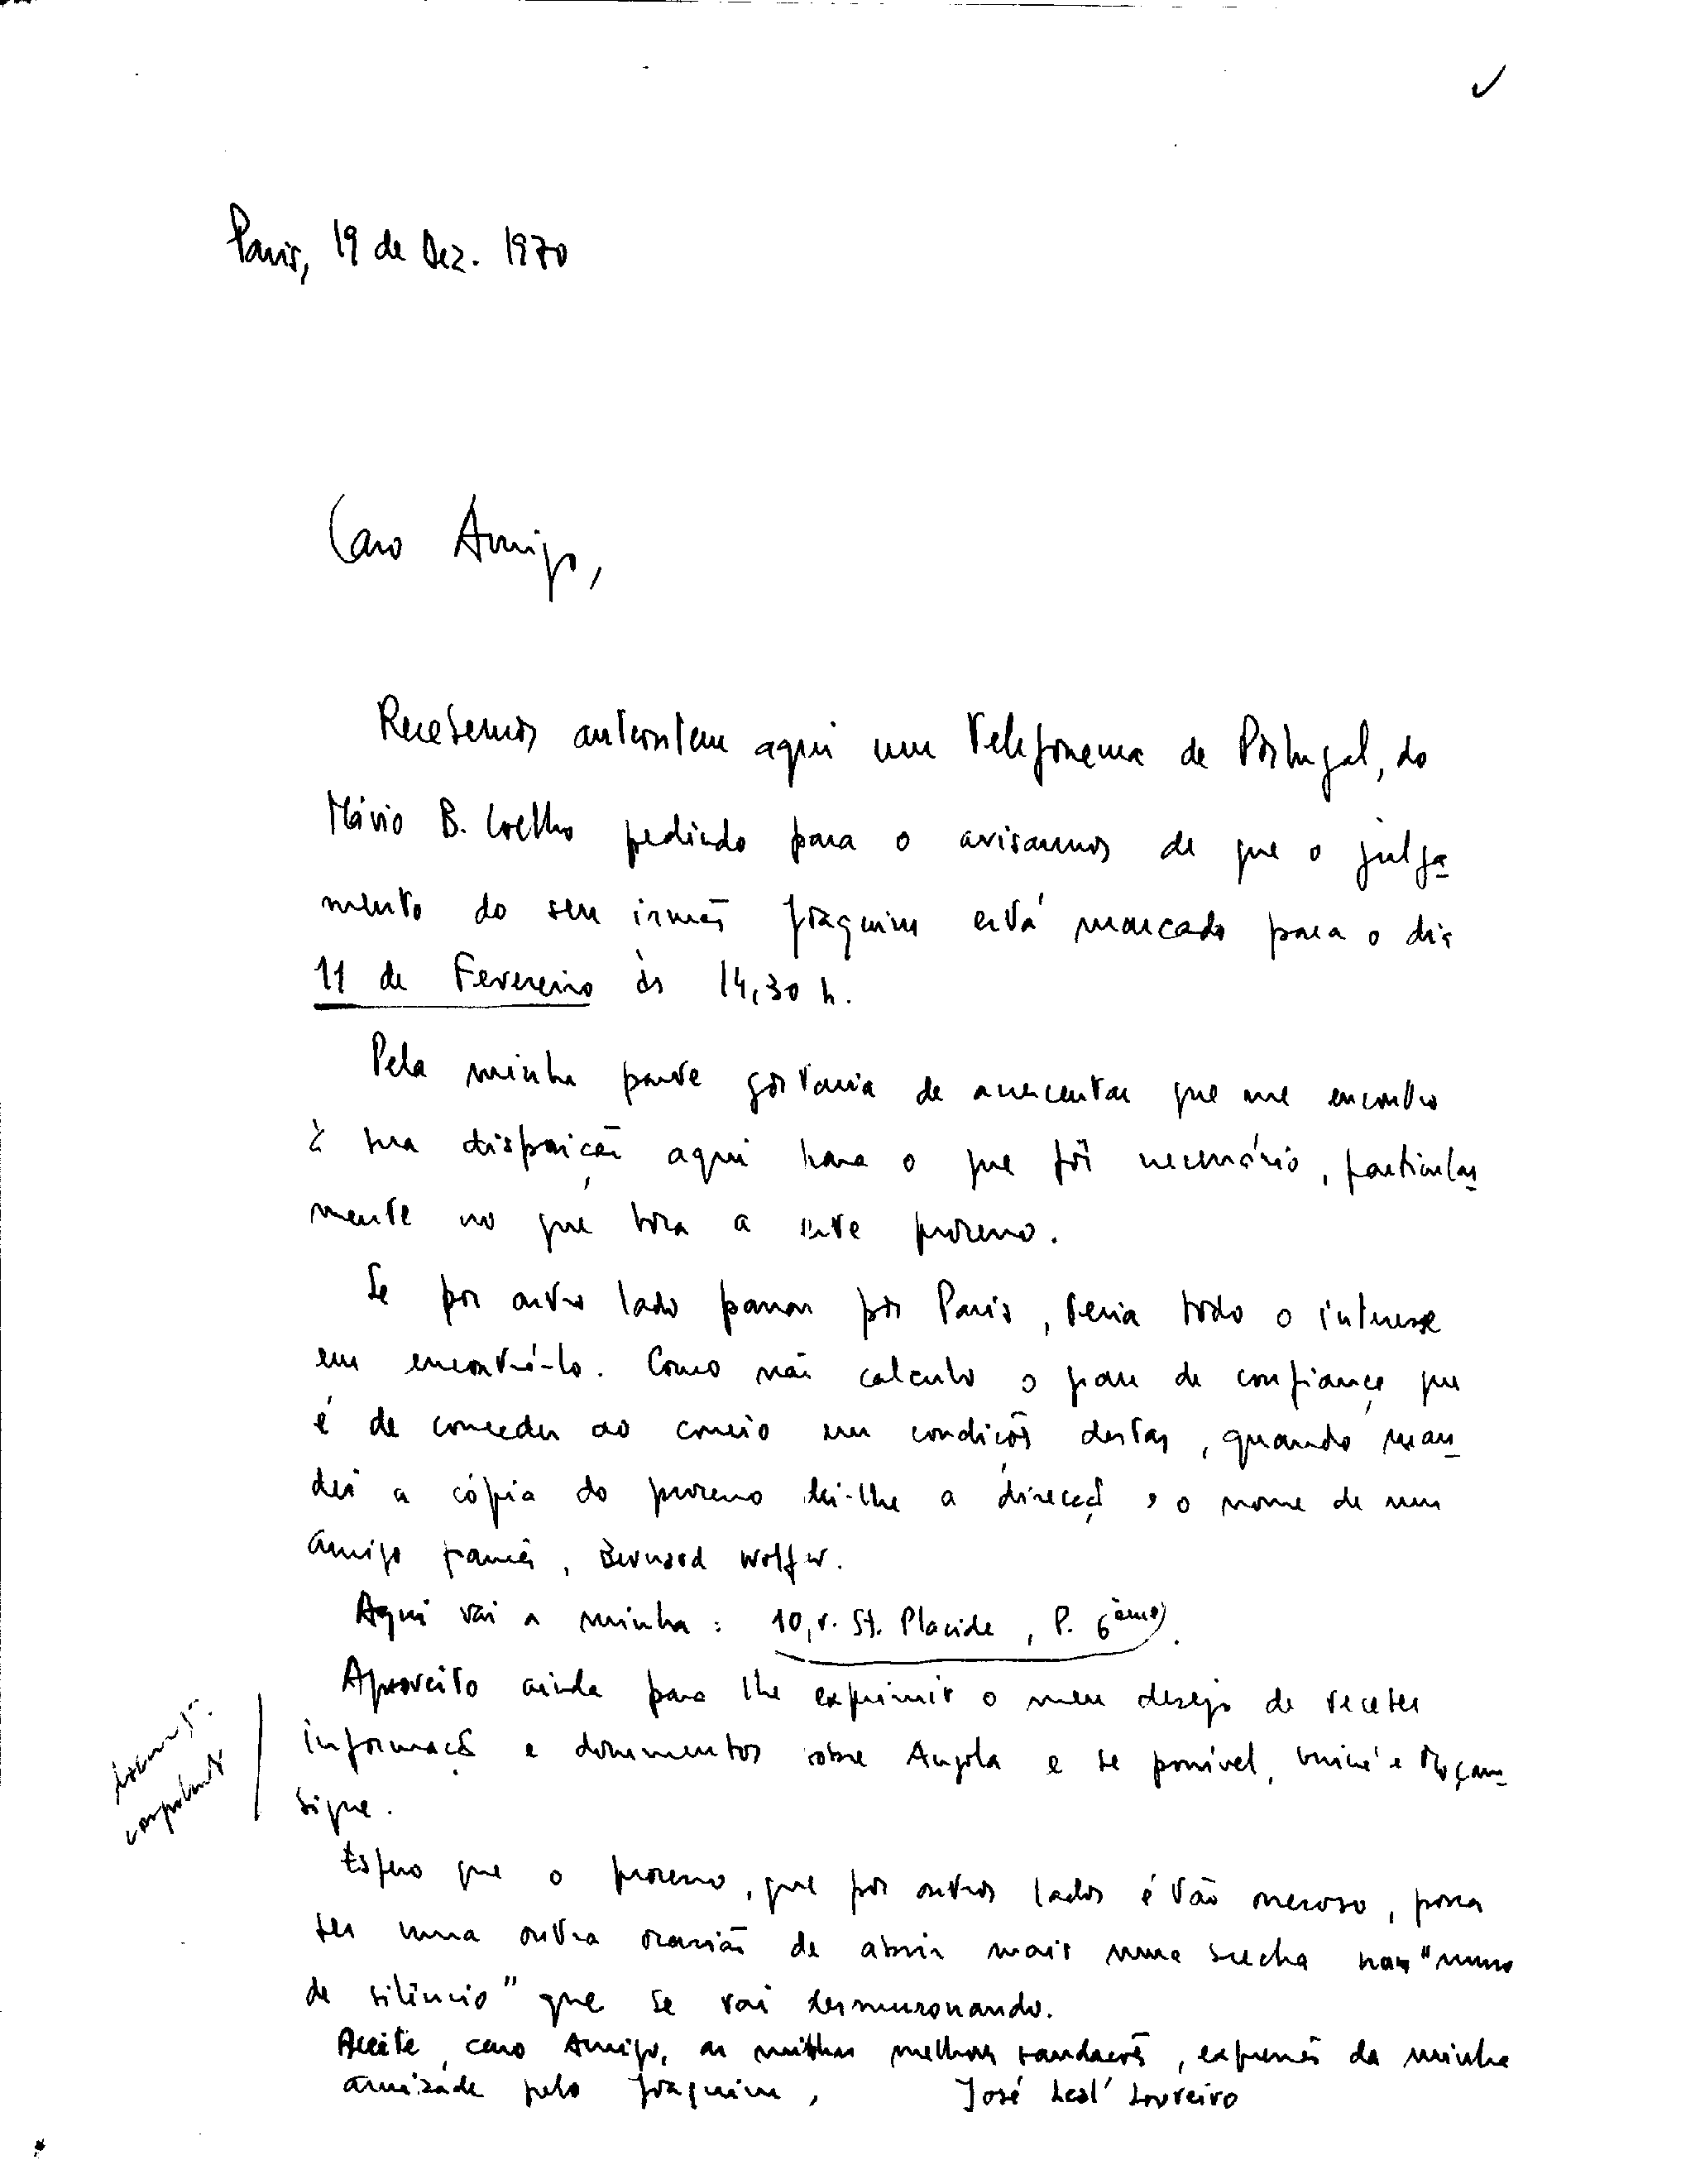 Paris, 19 de Dez. 1970
Caro Amigo,
Recebemos anteontem aqui um telefonema de Portugal, do
Mário B. Coelho pedindo para o avisarmos de que o julga
mento do seu irmão Joaquim está marcado para o dia
11 de Fevereiro às 14,30 h.
Pela minha parte gostaria de acrescentar que me encontro
à sua disposição aqui para o que fôr necessário, particular
mente no que toca a este processo.
Se por outro lado passar por Paris, teria todo o interesse
em encontrá-lo. Como não calculo o grau de confiança que
é de conceder ao correio em condições destas, quando man
dei a cópia do processo dei-lhe a direcção e o nome de um
amigo francês, Bernard Wolfer.
Aqui vai a minha: 10, r. St. Placide, P. 6ème.
Aproveito ainda para lhe exprimir o meu desejo de receber
informação e documentos sobre Angola e se possível, Guiné e Moçam
bique.
Espero que o processo, que por outros lados é tão oneroso, possa
ser uma outra ocasião de abrir mais uma brecha nas "muro
de silêncio" que se vai desmuronando.
Aceite, caro Amigo, as minhas melhores saudações, expressão da minha
amizade pelo Joaquim, José Leal Loureiro